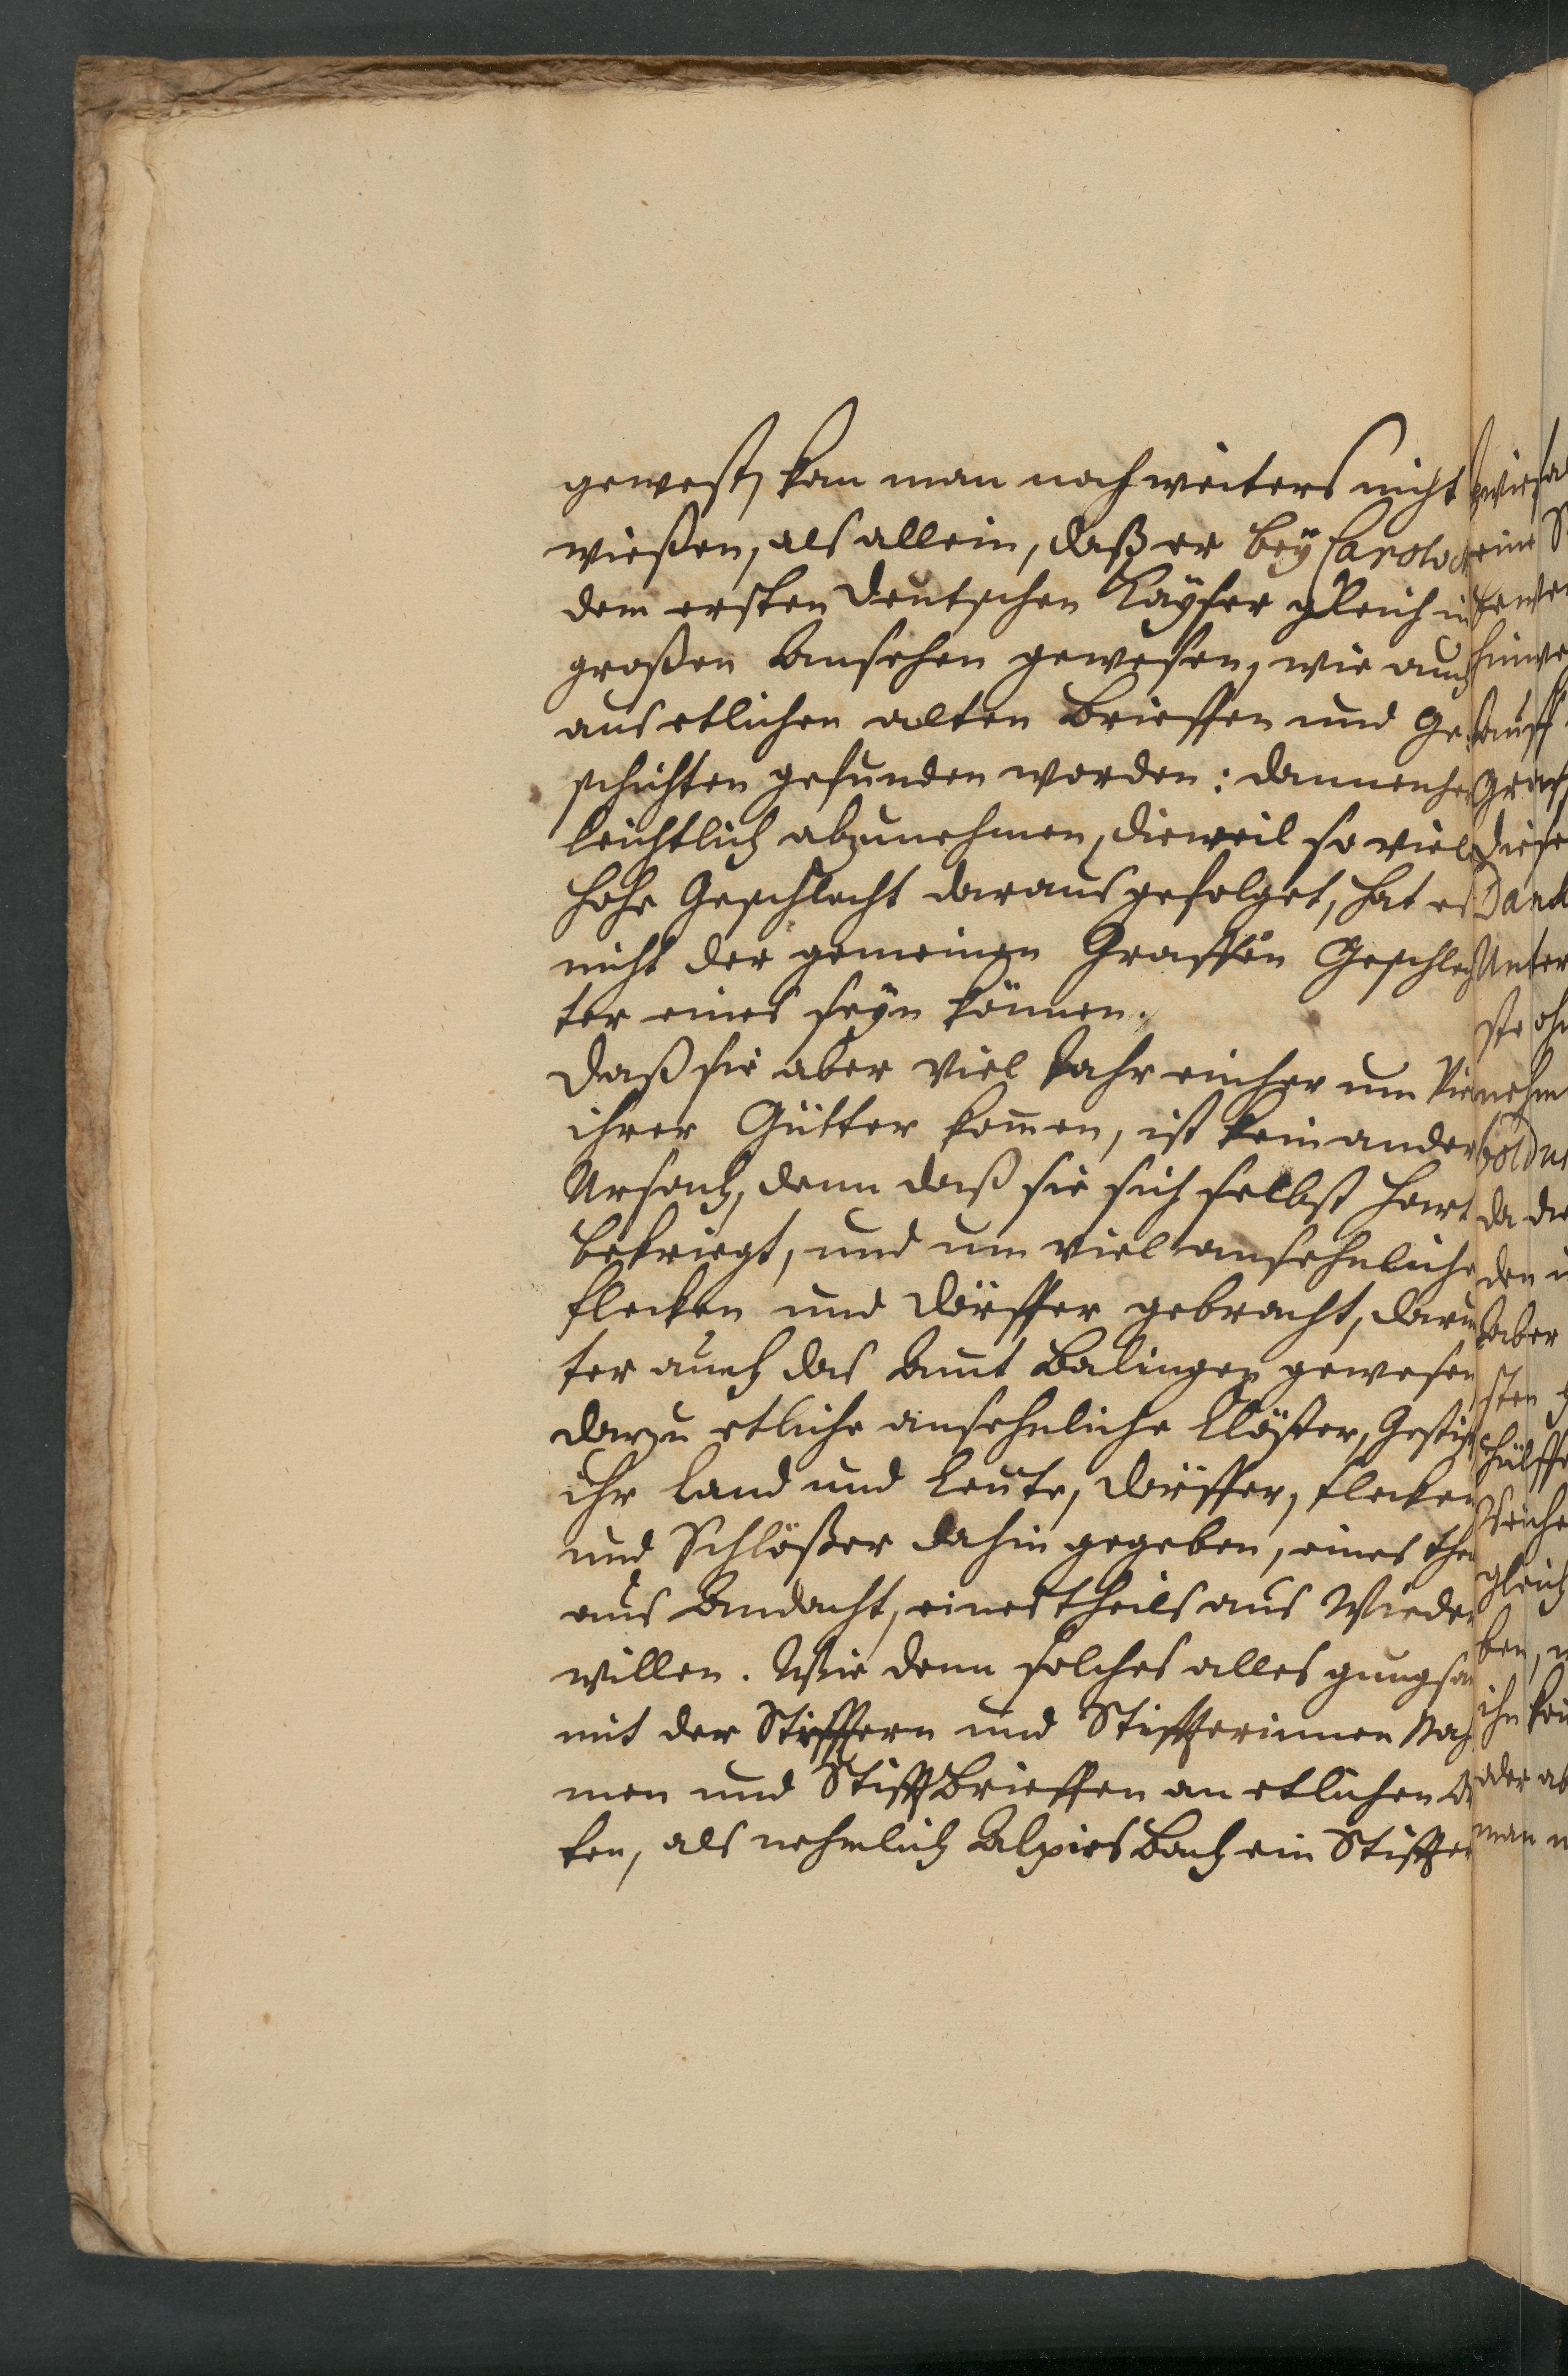 gewest, kan man noch weiters nicht
wießen, als allein, daß er beÿ Carolo
dem ersten deutschen Kaÿser gleich in
großen Ansehen gewesen, wie auch
aus etlichen alten Brieffen und Ge-
schichten gefunden worden: dannenher
leichtlich abzunehmen, dieweil so viel
hohe Geschlecht daraus gefolget, hat es
nicht der gemeinen Graffen Geschlech
ter eines seÿn können.
Daß sie aber viel Jahr einher um
ihrer Gütter kom̃en, ist kein ander
Ursach, denn daß sie sich selbst hart
bekriegt, und um viel ansehnliche
Flecken und Dörffer gebracht, darun
ter auch das Amt Balingen gewesen
darzu etliche ansehnliche Clöster, Gestifft
ihr Land und Leute, Dörffer, Flecken
und Schlößer dahin gegeben, eines theils
aus Andacht, eines theils aus Wieder
willen. Wie denn solches alles gungsam
mit der Stifftern und Stiffterinnen Nah
men und Stifftbrieffen an etlichen Or
ten, als nehmlich Alpirsbach ein Stiffter
eine
diese
Unter
nehm
da die
den
aber
sten
gleich
ben,
oder ab
man